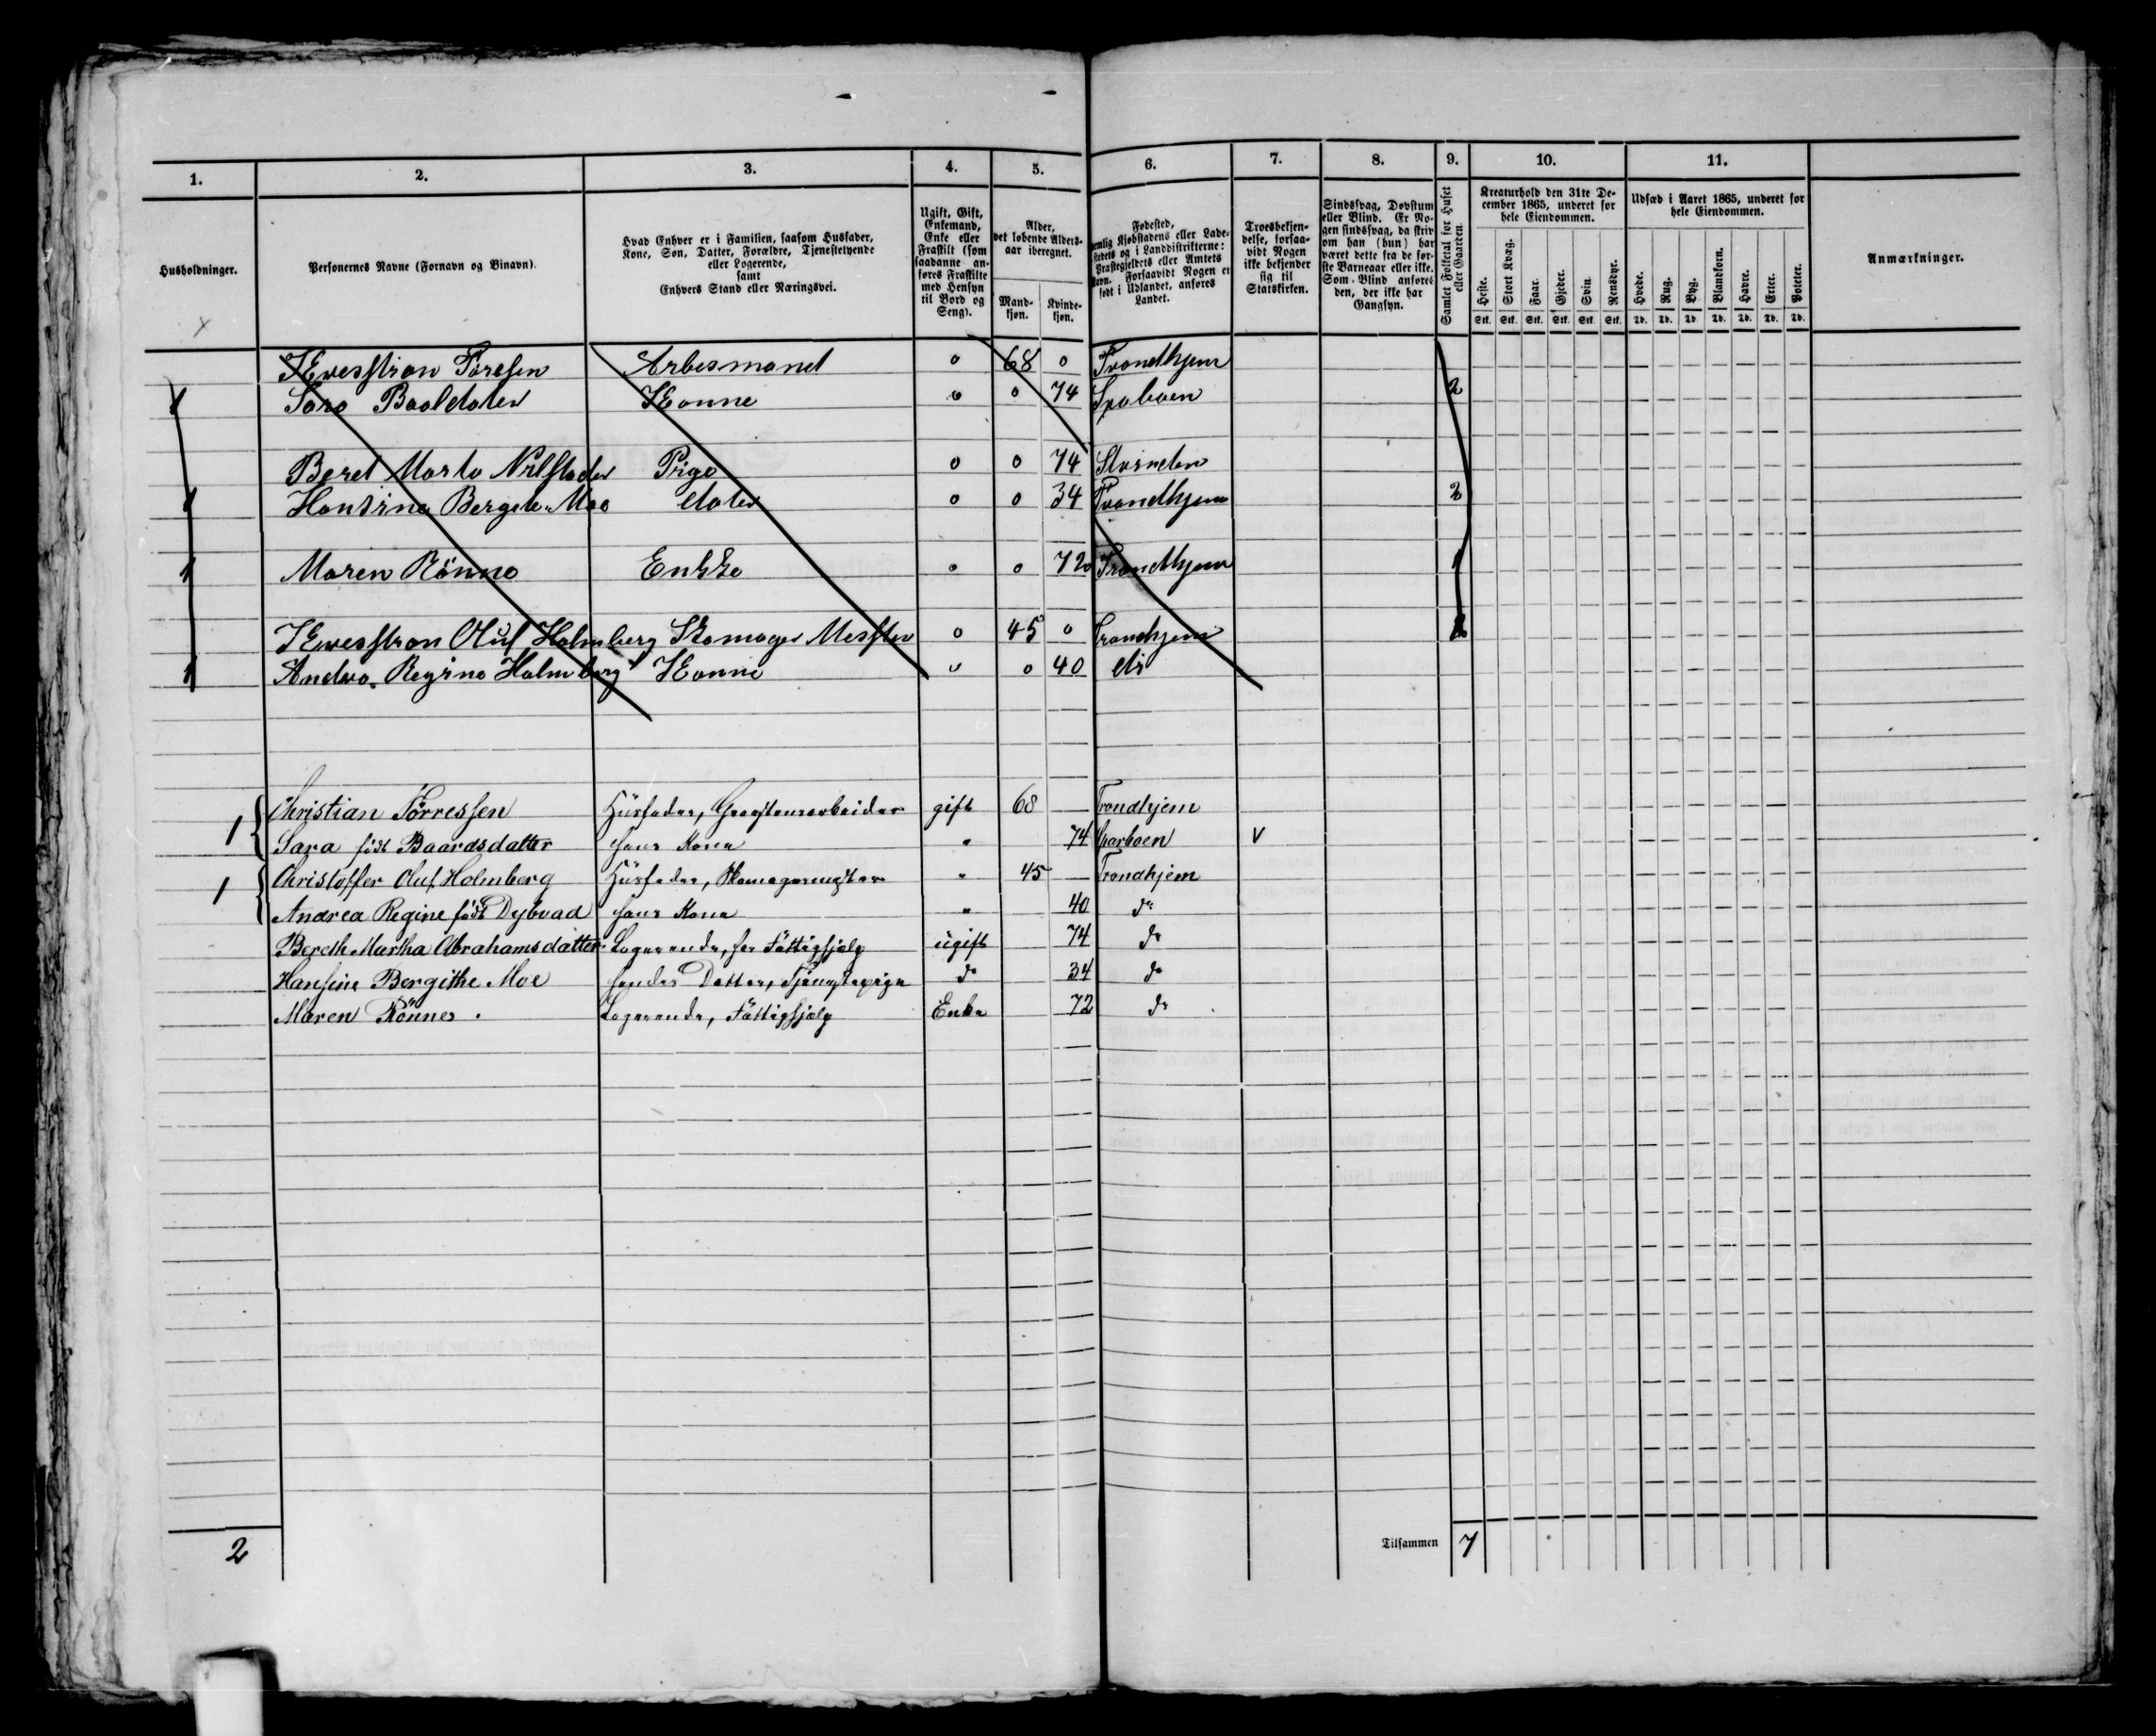 1. 2. 3. 4. 5. 6. 7. 8. 9. 10. 11.
Husholdninger.
Personernes Navne (Fornavn og Binavn).
Hvad Enhver er i Familien, saasom Husfader,
Kone, Søn, Datter, Forældre, Tjenestetyende
eller Logerende,
samt
Enhvers Stand eller Næringsvei.
Ugift, Gift,
Enkemand,
Enke eller
Fraskilt (som
saadanne an-
føres Fraskilte
med Hensyn
til Bord og
Seng).
Alder,
det løbende Alders-
aar iberegnet.
Mand-
kjøn.
Kvinde-
kjøn.
Fødested,
nemlig Kjøbstadens eller Lade-
stedets og i Landdistrikterne:
Præstegjeldets eller Amtets
Navn. Forsaavidt Nogen er
født i Udlandet, anføres
Landet.
Troesbekjen-
delse, forsaa-
vidt Nogen
ikke bekjender
sig til
Statskirken.
Sindssvag, Døvstum
eller Blind. Er No-
gen sindssvag, da skriv
om han (hun) har
været dette fra de før-
ste Barneaar eller ikke.
Som Blind anføres
den, der ikke har
Gangsyn.
Samlet Folketal for Huset
eller Gaarden.
Kreaturhold den 31te De-
cember 1865, underet for
hele Eiendommen.
Heste. Stort Kvæg. Faar. Gjeder. Svin. Rensdyr.
Stk. Stk. Stk. Stk. Stk. Stk.
Udsæd i Aaret 1865, underet for
hele Eiendommen.
Hvede. Rug. Byg. Blandkorn. Havre. Erter. Poteter.
Td. Td. Td. Td. Td. Td. Td.
Anmærkninger.
Kresstian Toresen Arbesmand o 68 o Trondhjem
1 Sara Baaldater Konne o o 74 Sparboen 2
Beret Marta Nilstader Pige o o 74 Strinden
1 Hansine Bergete Moe dater o o 34 Trondhjem 2
1 Maren Rönne Enkke o o 72 Trondhjem 1
Kresstian Oluf Holmberg Skomager Messter o 45 o Trondhjem 2
1 Andrea Regine Holmberg Konne o o 40 do
1 Christian Törressen Huusfader, Graastensarbeider gift 68 — Trondhjem
Sara födt Baardsdatter hans Kone " 74 Sparboen V
1 Christoffer Oluf Holmberg Huusfader, Skomagermester " 45 — Trondhjem
Andrea Regine födt Dybvad hans Kone " 40 do
Bereth Martha Abrahamsdatter Logerende, har Fattighjælp ugift 74 do
Hansine Bergithe Moe hendes Datter, Tjenestepige do 34 do
Maren Rönne. Logerende, Fattighjælp Enke 72 do
2 Tilsammen 7